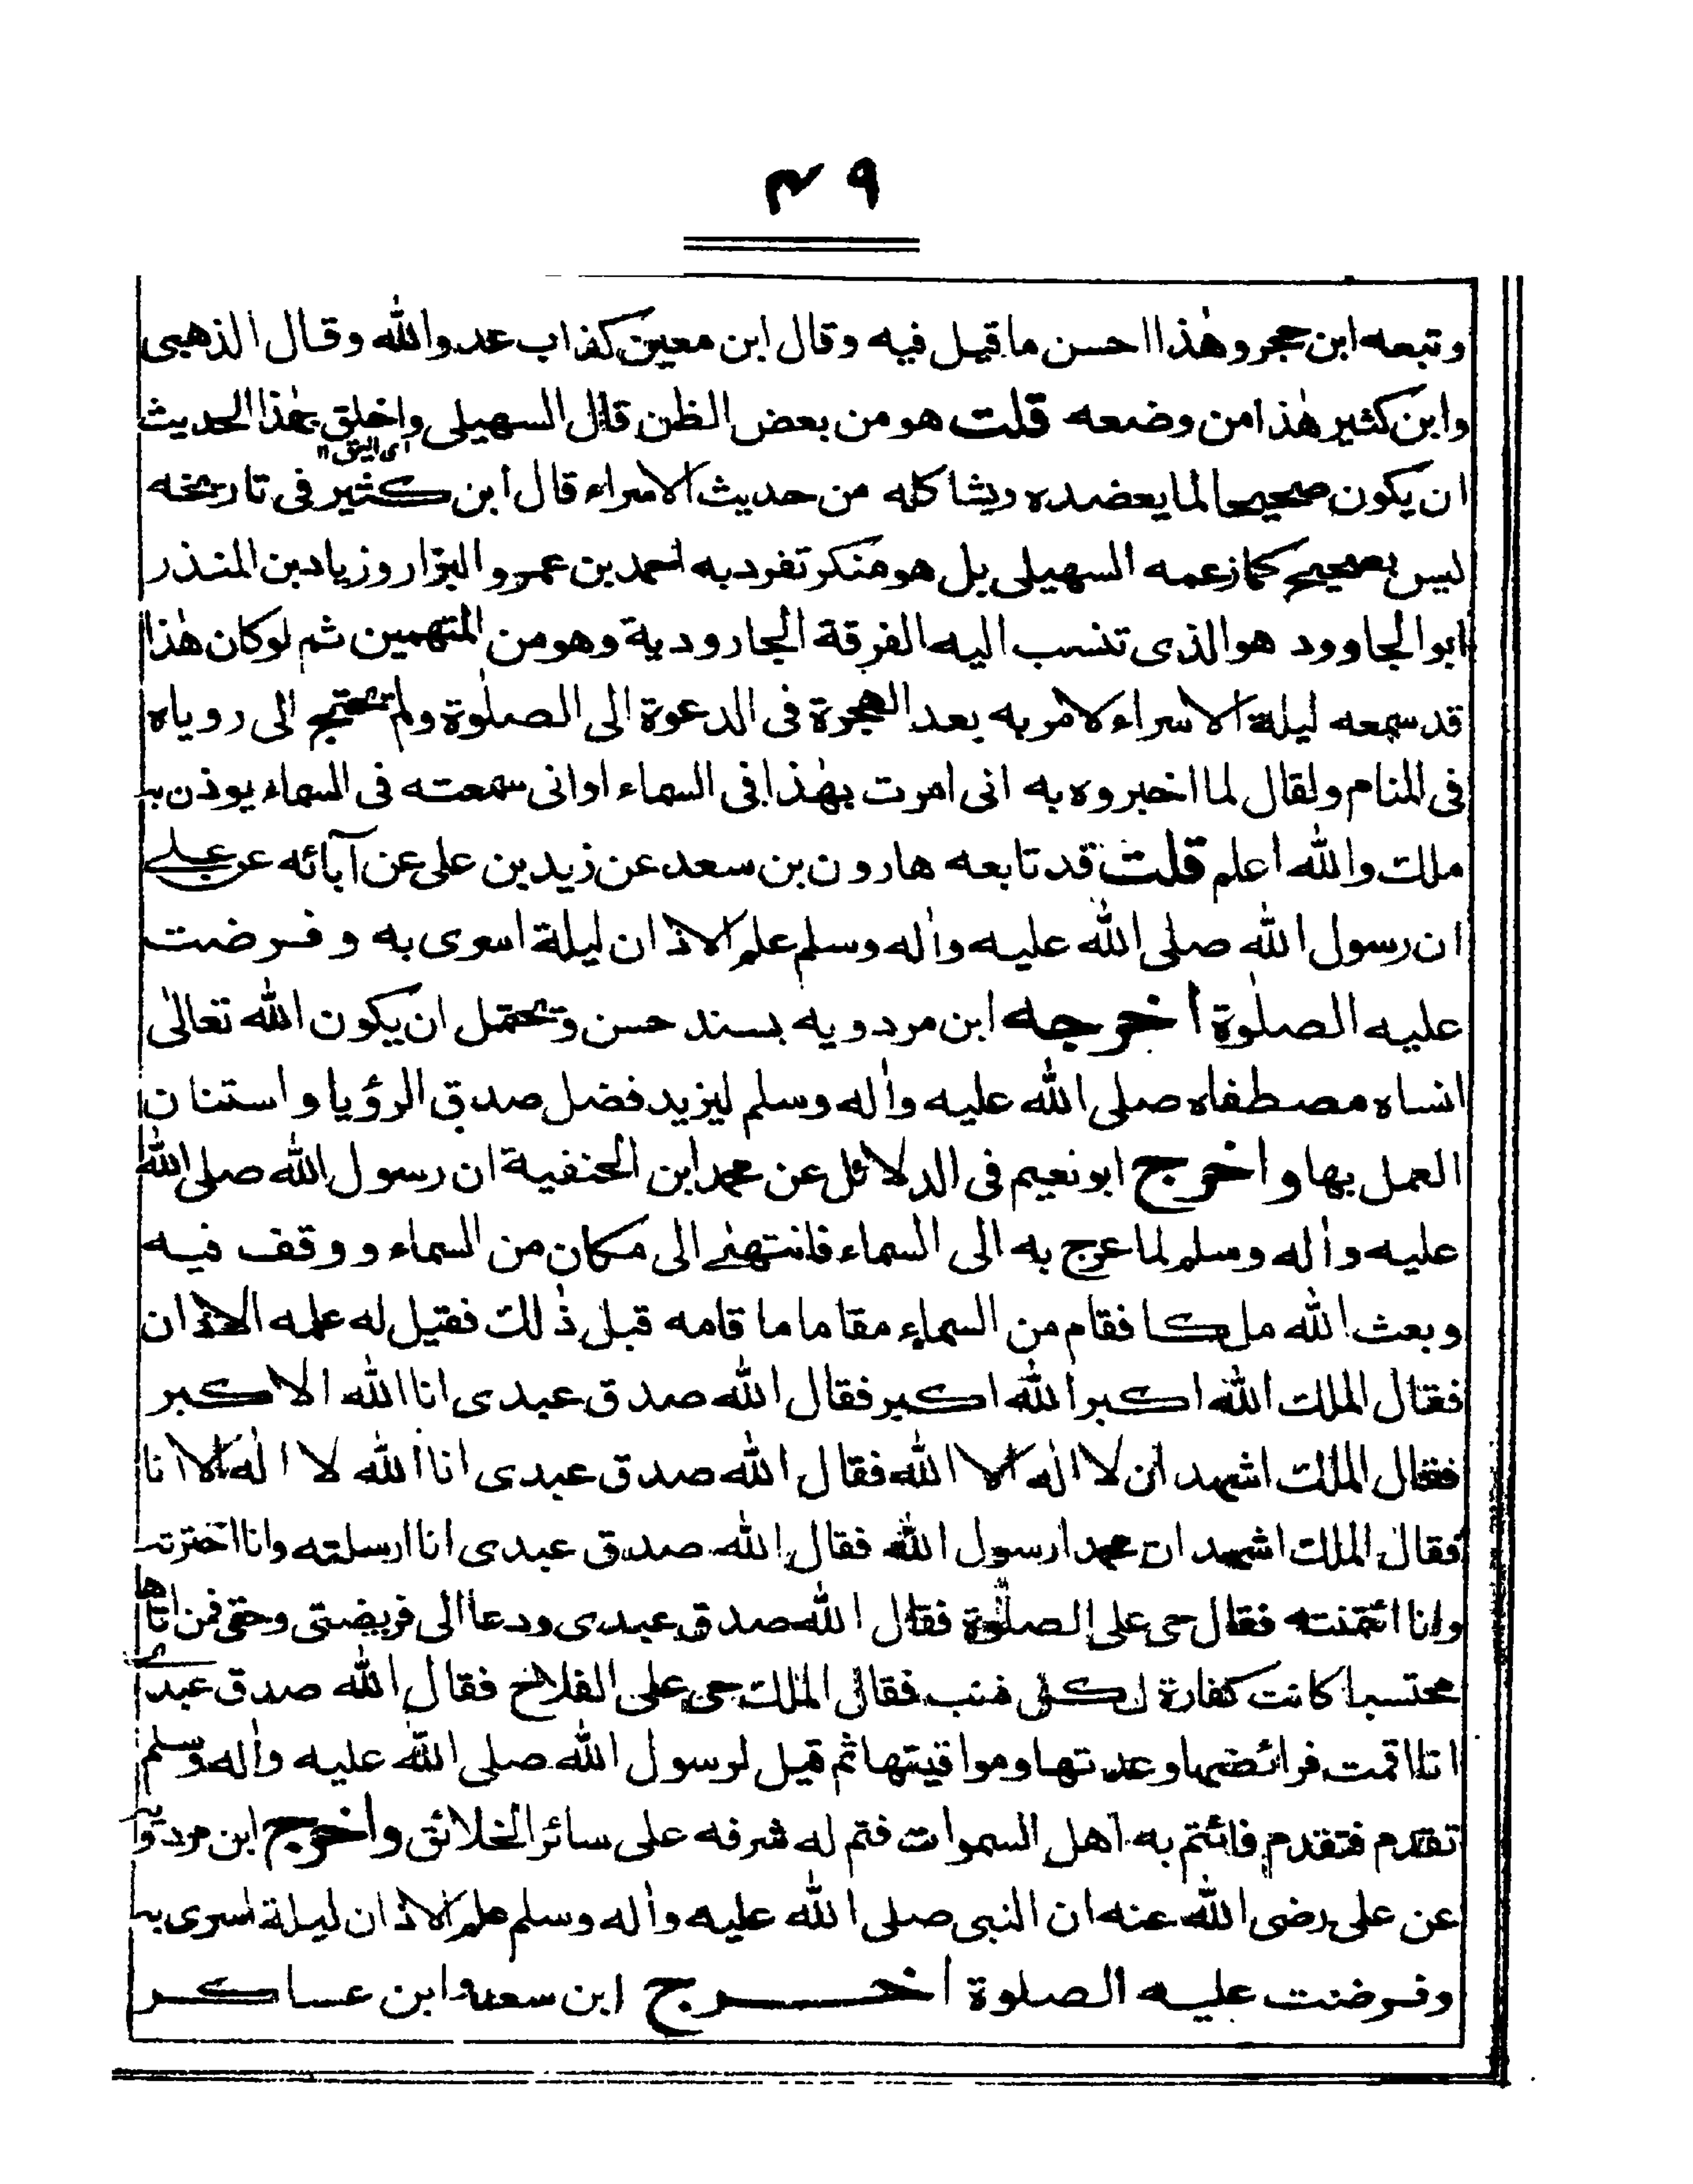 ٤٩
وتبعه ابن حجر وهٰذا احسن ما قيل فيه وقال ابن معين كذاب عدو الله وقال الذهبى
وابن كثير هٰذا من وضعه قلت هو من بعض الظن قال السهيلى واخلق بهٰذا الحديث
اى اليق ١٢
ان يكون صحيحا لما يعضده ويشاكله من حديث الاسراء قال ابن كثير فى تاريخه
ليس بصحيح كما زعمه السهيلى بل هو منكر تفرد به احمد بن عمرو البزار وزياد بن المنذر
ابو الجاوود هو الذى تنسب اليه الفرقة الجارودية وهو من المتهمين ثم لو كان هٰذا
قد سمعه ليلة الاسراء لامر به بعد الهجرة فى الدعوة الى الصلٰوة ولم تحتج الى روياه
فى المنام ولقال لما اخبروه به انى امرت بهٰذا فى السماء او انى سمعته فى السماء يوذن به
ملك والله اعلم قلت قد تابعه هارون بن سعد عن زيد بن على عن آبائه عن على
ان رسول الله صلى الله عليه واٰله وسلم علم الاذان ليلة اسرى به وفرضت
عليه الصلٰوة اخرجه ابن مردويه بسند حسن ويحتمل ان يكون الله تعالىٰ
انساه مصطفاه صلى الله عليه واٰله وسلم ليزيد فضل صدق الرؤيا واستنان
العمل بها واخرج ابو نعيم فى الدلائل عن محمد ابن الحنفية ان رسول الله صلى الله
عليه واٰله وسلم لما عرج به الى السماء فانتهىٰ الى مكان من السماء ووقف فيه
وبعث الله ملكا فقام من السماء مقاما ما قامه قبل ذٰلك فقيل له علمه الاذان
فقال الملك الله اكبر الله اكبر فقال الله صدق عبدى انا الله الاكبر
فقال الملك اشهد ان لا اله الا الله فقال الله صدق عبدى انا الله لا اله الا انا
فقال الملك اشهد ان محمدا رسول الله فقال الله صدق عبدى انا ارسلته وانا اخترته
وانا ائتمنته فقال حى على الصلٰوة فقال الله صدق عبدى ودعا الى فريضتى وحقى فمن اتاها
محتسبا كانت كفارة لكل ذنب فقال الملك حى على الفلاح فقال الله صدق عبدى
انا اقمت فرائضها وعدتها ومواقيتها ثم قيل لرسول الله صلى الله عليه واٰله وسلم
تقدم فتقدم فائتم به اهل السموات فتم له شرفه على سائر الخلائق واخرج ابن مردويه
عن على رضى الله عنه ان النبى صلى الله عليه واٰله وسلم علم الاذان ليلة اسرى به
وفرضت عليه الصلوة اخرج ابن سعد وابن عساكر